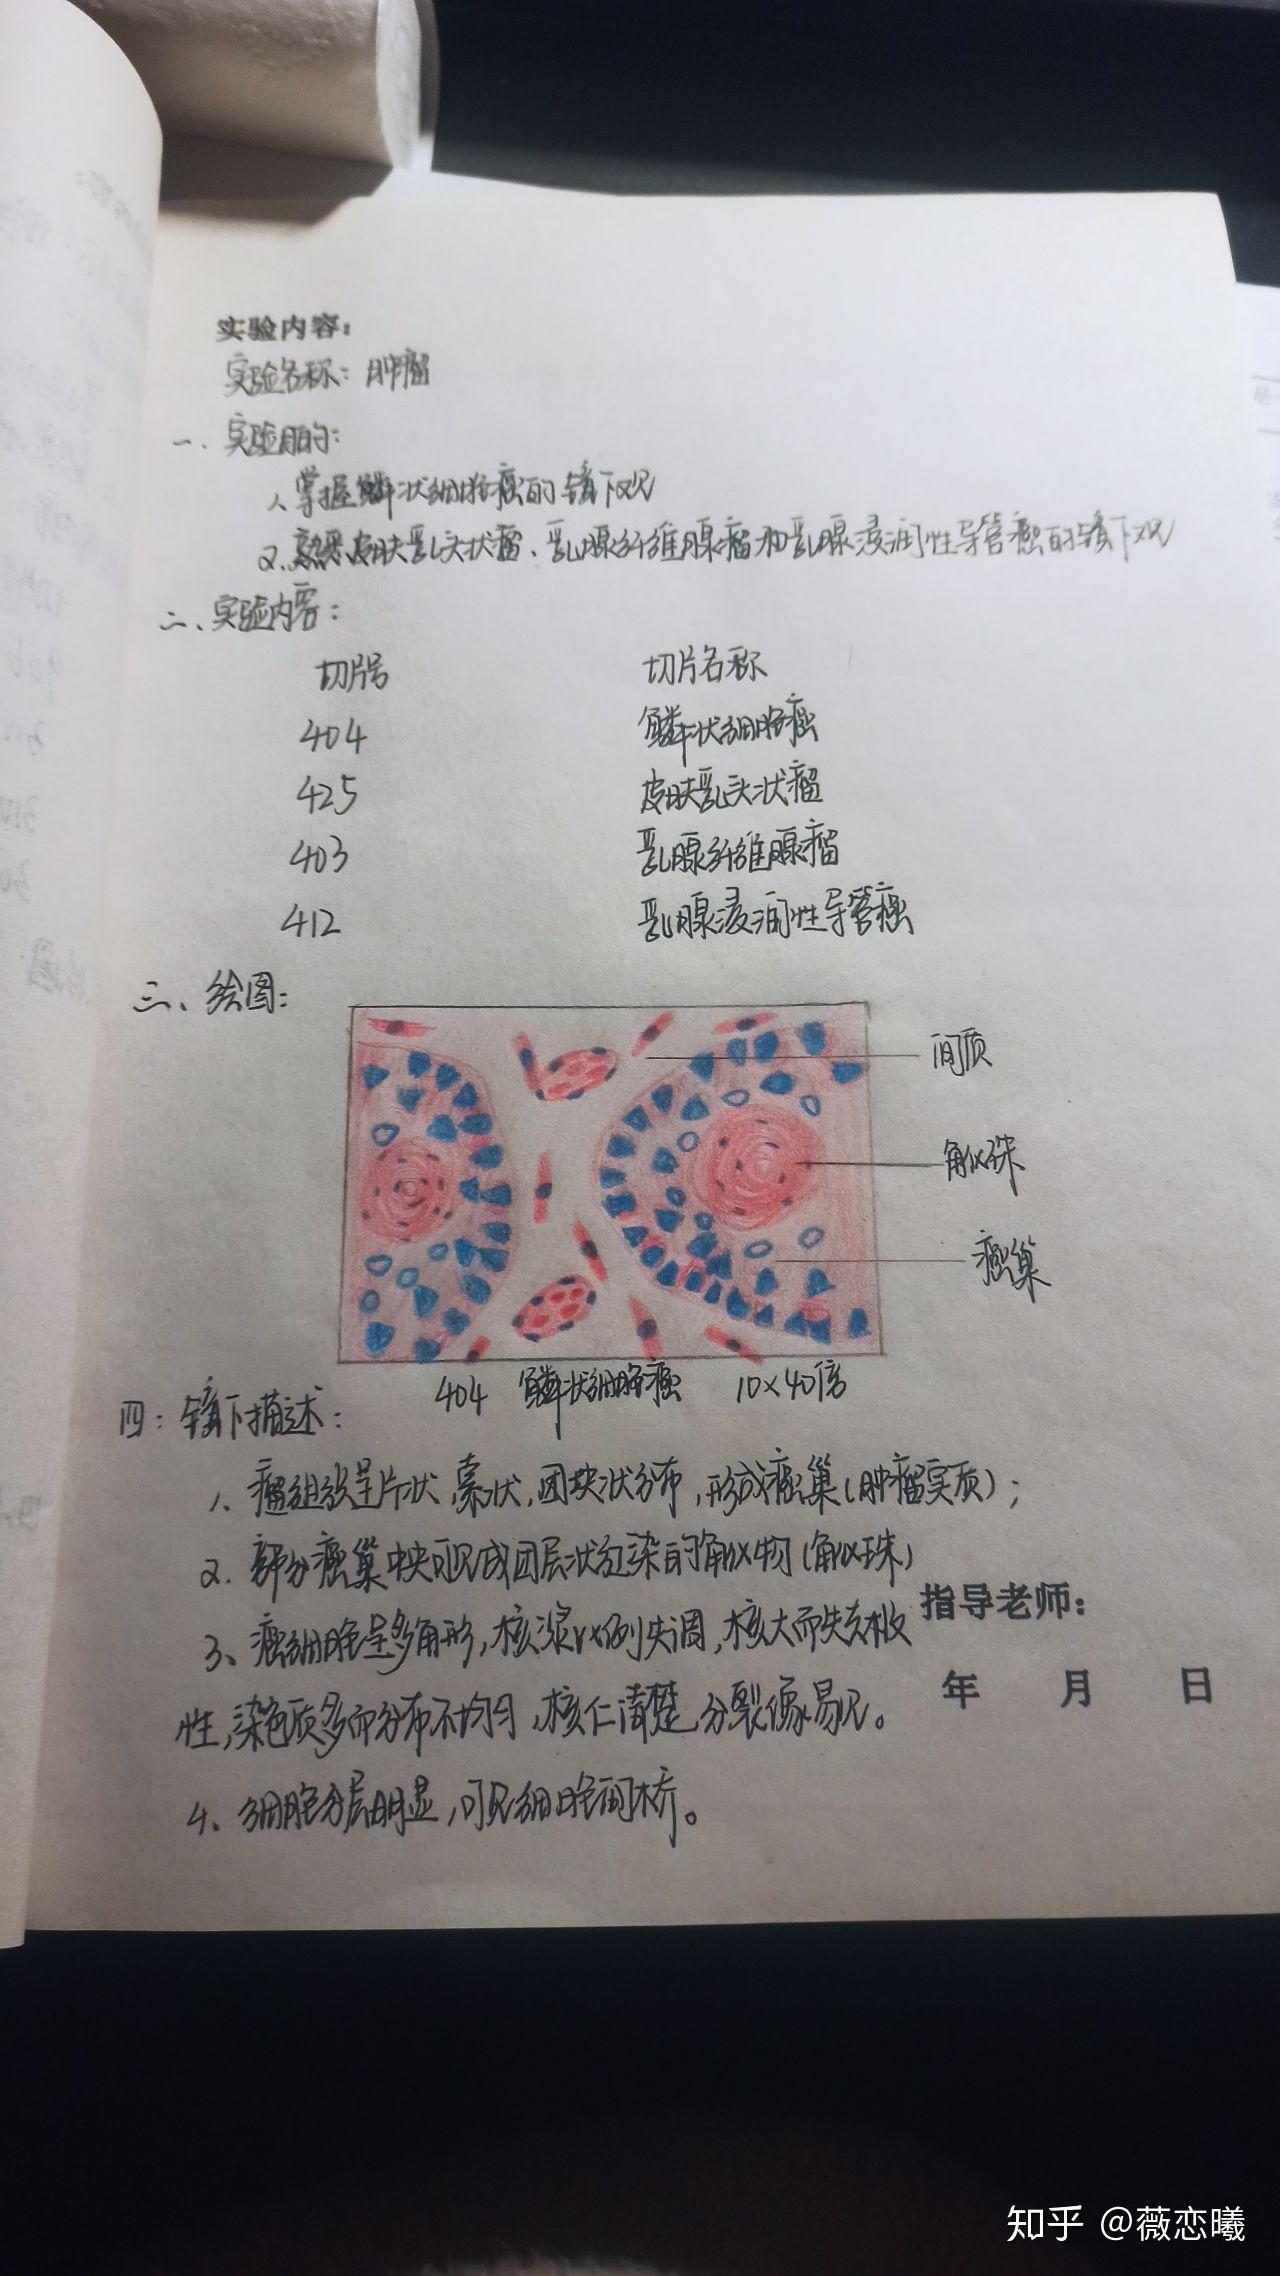 实验内容:
实验名称: 肿瘤
一、实验目的:
1、掌握鳞状细胞癌的镜下观
2、熟悉皮肤乳头状瘤、乳腺纤维腺瘤和乳腺浸润性导管癌的镜下观
二、实验内容:
切片号 切片名称
404 鳞状细胞癌
425 皮肤乳头状瘤
403 乳腺纤维腺瘤
412 乳腺浸润性导管癌
三、绘图:
间质
角化珠
癌巢
404 鳞状细胞癌 10×40倍
四: 镜下描述:
1、瘤组织呈片状,索状,团块状分布,形成癌巢(肿瘤实质);
2. 部分癌巢中央可见成团层状红染的角化物(角化珠)
指导老师:
3、癌细胞呈多角形,核浆比例失调,核大而失去极
年 月 日
性,染色质多而分布不均匀,核仁清楚,分裂像易见。
4、细胞分层明显,可见细胞间桥。
知乎 @薇恋曦